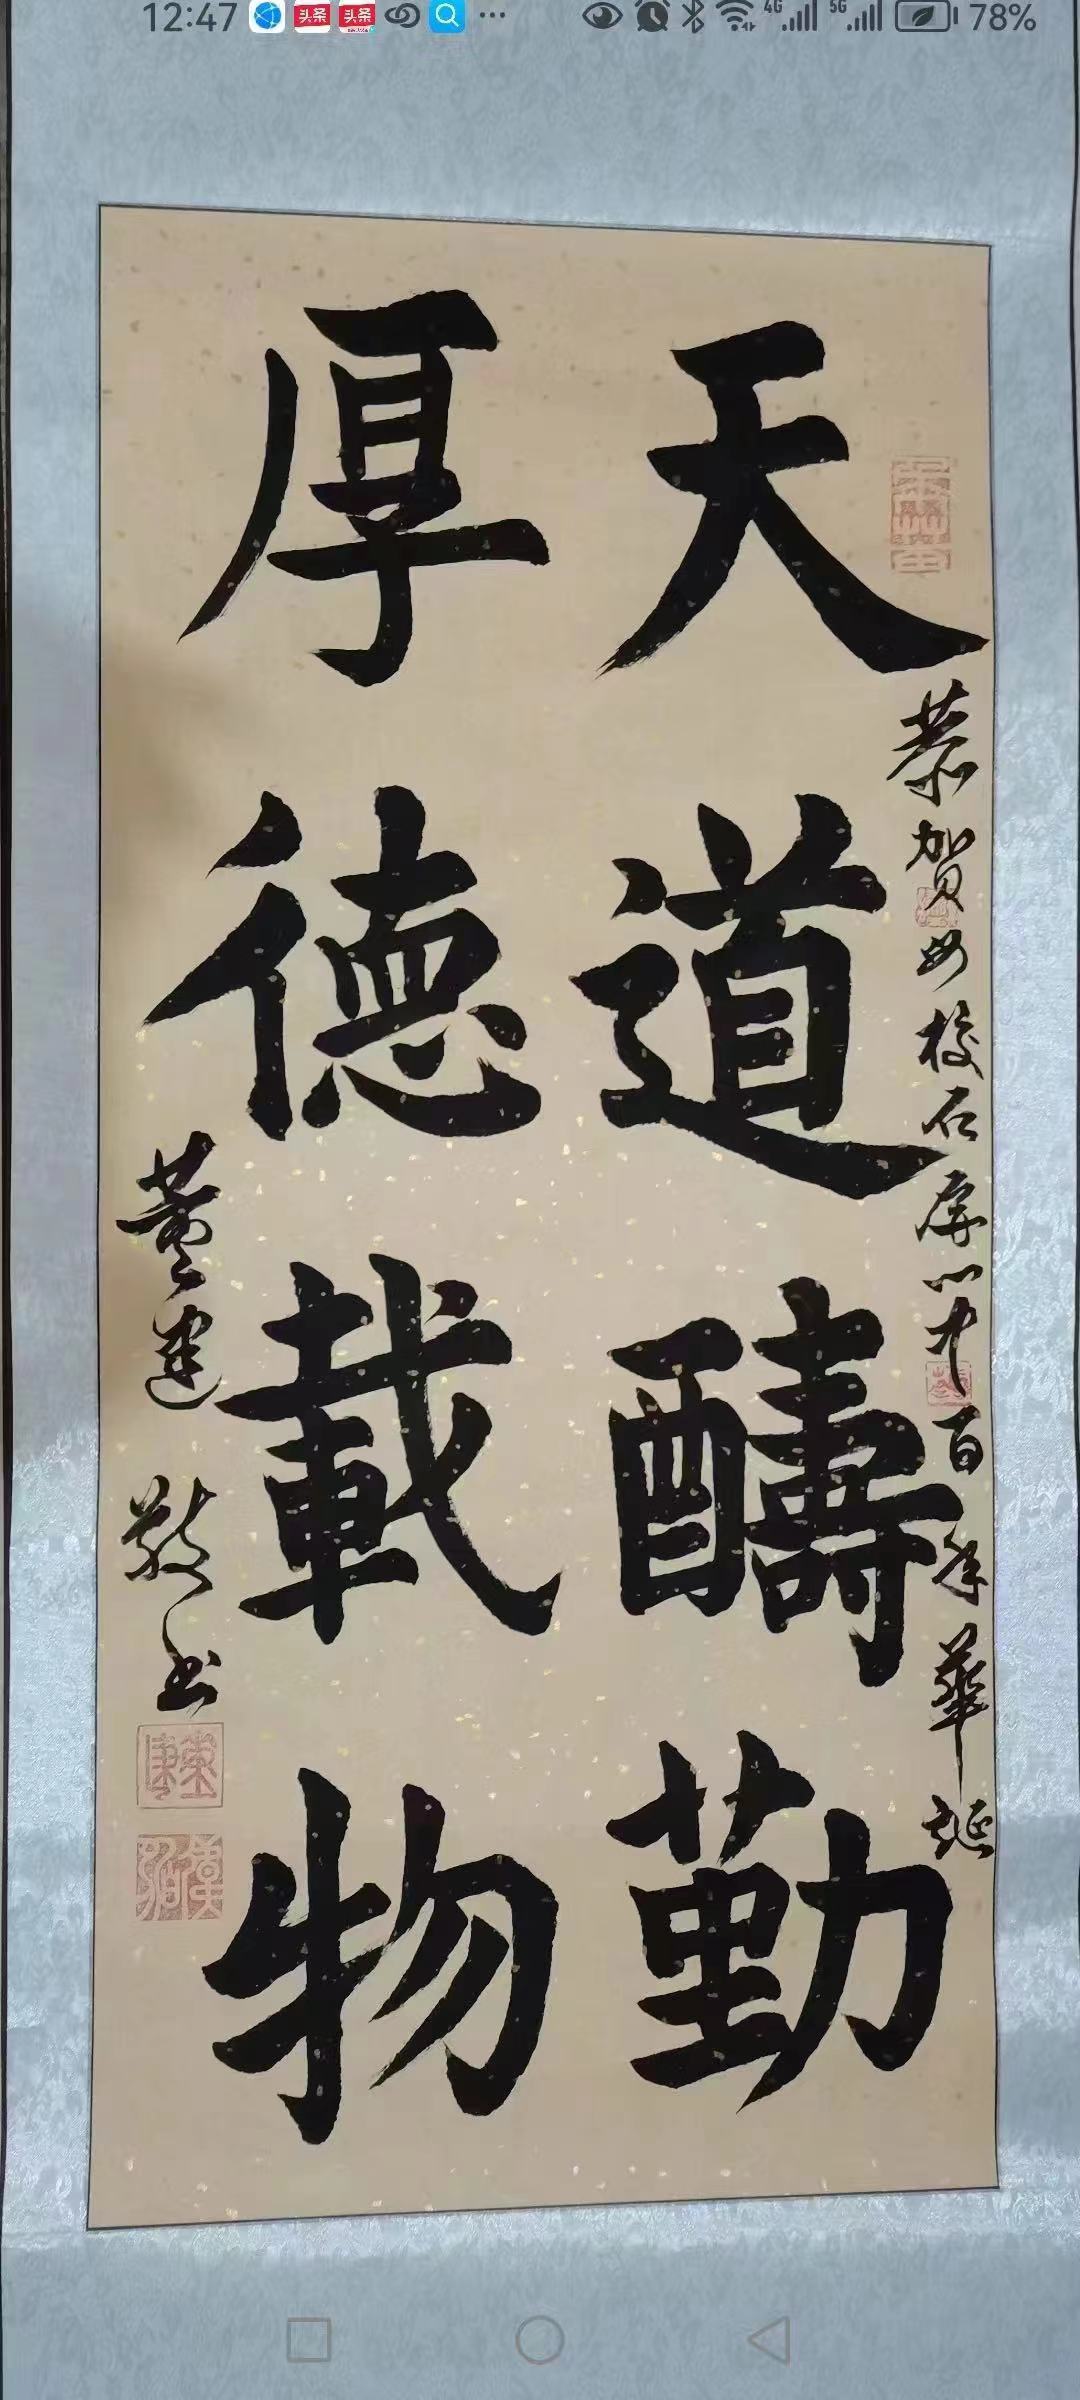 12:47 头条 头条 4G 5G 78%
恭贺母校石屏一中百年華誕
天道醻勤
厚德載物
董建敬书